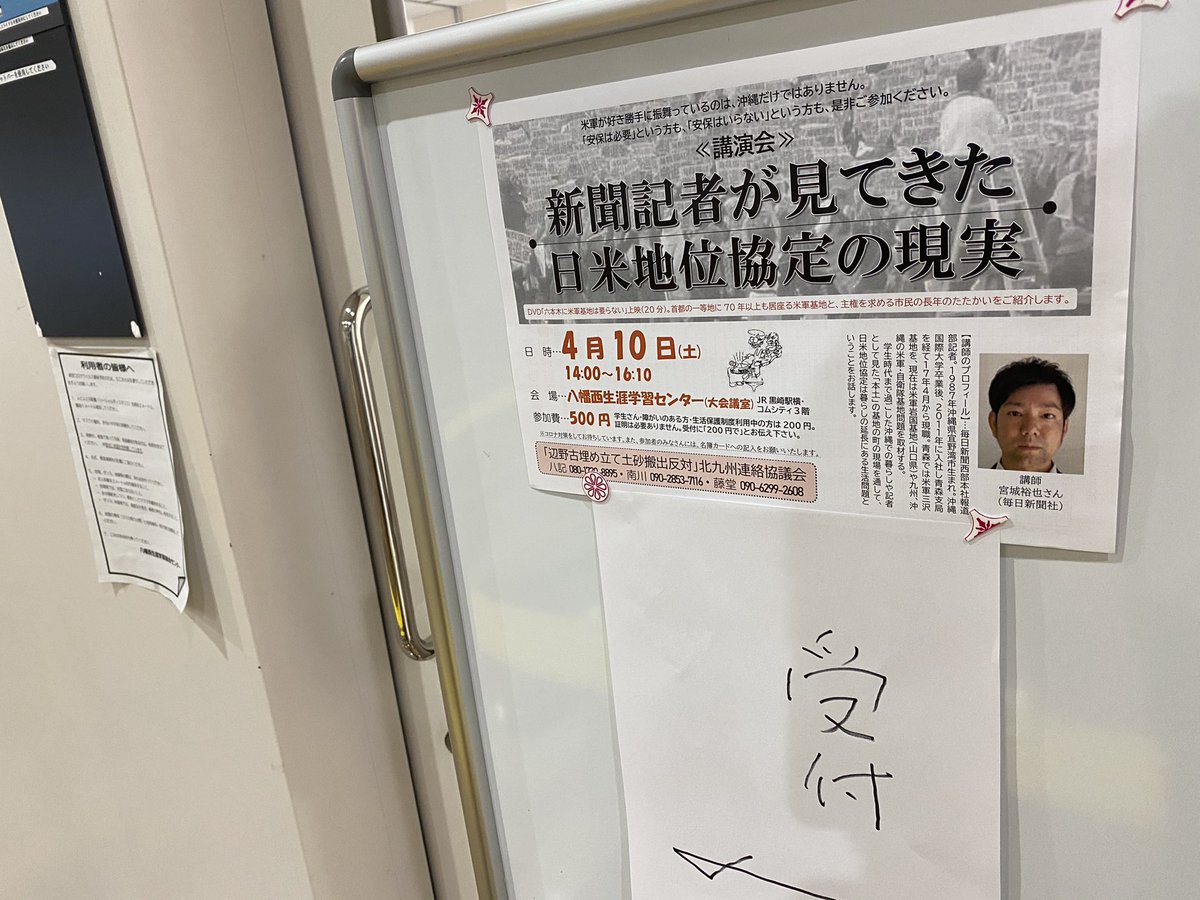 ットバーを使用してください
利用者の皆様へ
八幡西生涯学習総合センター
米軍が好き勝手に振舞っているのは、沖縄だけではありません。
「安保は必要」という方も、「安保はいらない」という方も、是非ご参加ください。
≪講演会≫
新聞記者が見てきた
日米地位協定の現実
DVD「六本木に米軍基地は要らない」上映(20分)。首都の一等地に70年以上も居座る米軍基地と、主権を求める市民の長年のたたかいをご紹介します。
日 時…4月10日(土)
14:00~16:10
会 場…八幡西生涯学習センター(大会議室)
JR黒崎駅横・
コムシティ3階
参加費…500円
学生さん・障がいのある方・生活保護制度利用中の方は200円。
証明は必要ありません。受付に「200円で」とお伝え下さい。
※コロナ対策をしてお待ちしています。また、参加者のみなさんには、名簿カードへの記入をお願いいたします。
「辺野古埋め立て土砂搬出反対」北九州連絡協議会
八記 080-1730-8895・南川 090-2853-7116・藤堂 090-6299-2608
【講師のプロフィール…毎日新聞西部本社報道
部記者。1987年沖縄県宜野湾市生まれ。沖縄
国際大学卒業後、2011年に入社し青森支局
を経て17年4月から現職。青森では米軍三沢
基地を、現在は米軍岩国基地(山口県)や九州、沖
縄の米軍・自衛隊基地問題を取材する。
学生時代まで過ごした沖縄での暮らしや記者
として見た「本土」の基地の町の現場を通して、
日米地位協定は暮らしの延長にある生活問題と
いうことをお話します。
講師
宮城裕也さん
(毎日新聞社)
受付